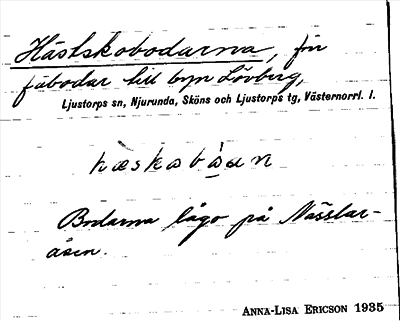 Hästskobodarna, förr
fäbodar till byn Lövberg,
Ljustorps sn, Njurunda, Sköns och Ljustorps tg, Västernorrl. l.
Bodarna lågo på Nässlar-
åsen.
ANNA-LISA ERICSON 1935